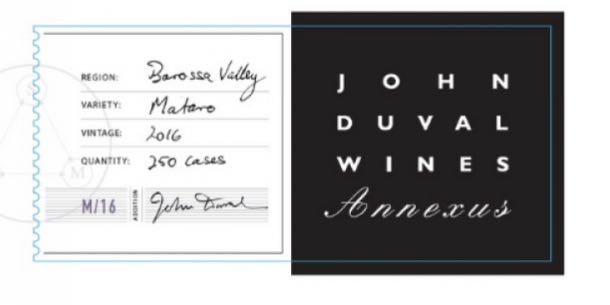 REGION: Barossa Valley
VARIETY: Mataro
VINTAGE: 2016
QUANTITY: 250 cases
M/16 ADDITION John Duval
S
M
JOHN
DUVAL
WINES
Annexus